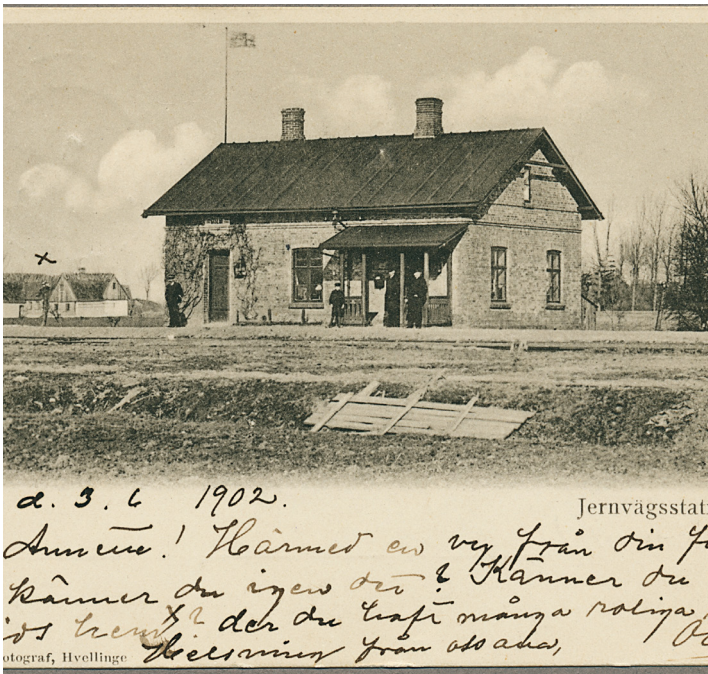 d. 3. 6 1902.
Jernvägsstati
Annette! Härmed en vy från din f
känner du igen det? Känner du
ids hem? der du haft många roliga
otograf, Hvellinge
Helsning från oss alla,